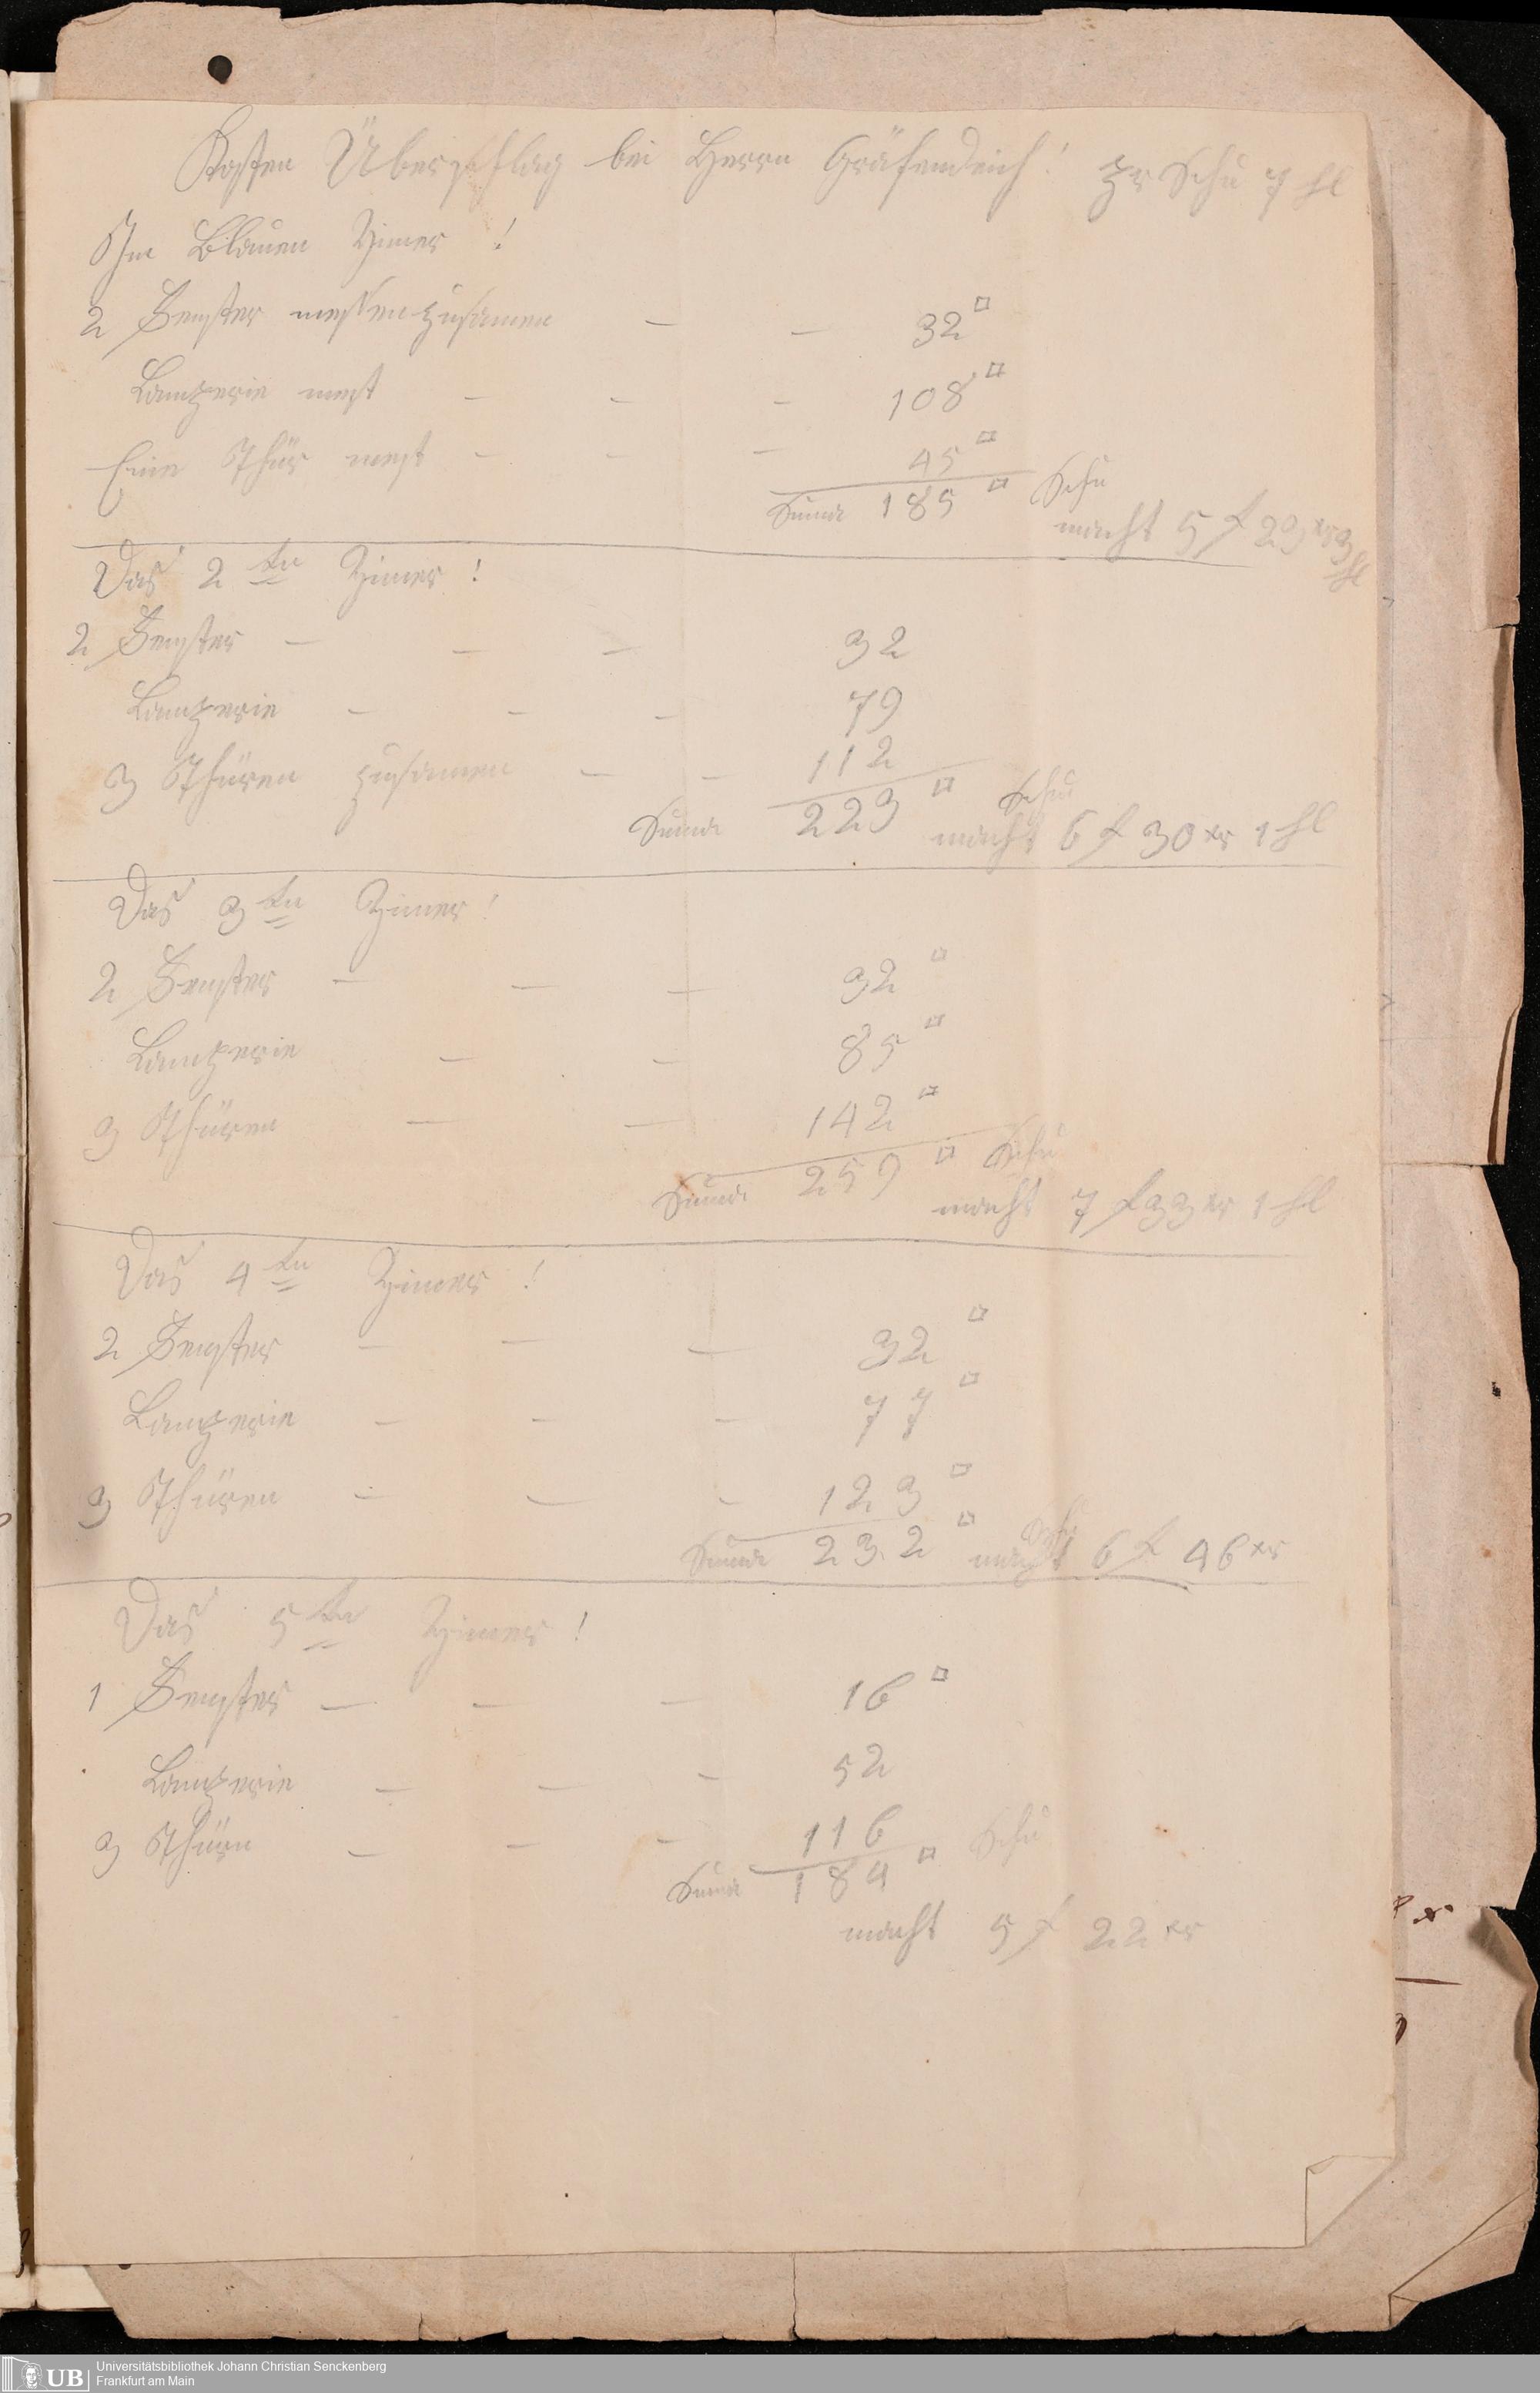 Kosten Überschlag bei Herrn Gräfendeich! pr Schu 7 hl
Im Blauen Zimer !
2 Fenster messen zusamen — — 32 □
Lamperie mest — — — 108 □
Eine Thür mest — — — 45 □
Suma 185 □ Schu
macht 5 f 23 xr 3 hl
Das 2 tn Zimer !
2 Fenster — — — 32
Lamperie — — — 79
3 Thüren zusamen — — 112
Suma 223 □ Schu
macht 6 f 30 xr 1 hl
Das 3 tn Zimer !
2 Fenster — — — 32 □
Lamperie — — 85 □
3 Thüren — — 142 □
Suma 259 □ Schu
macht 7 f 33 xr 1 hl
Das 4 tn Zimer !
2 Fenster — — — 32 □
Lamperie — — — 77 □
3 Thüren — — — 123 □
Suma 232 □ Schu
macht 6 f 46 xr
Das 5 tn Zimer !
1 Fenster — — — 16 □
Lamperie — — — 52
3 Thürn — — — 116
Suma 184 □ Schu
macht 5 f 22 xr
UB Universitätsbibliothek Johann Christian Senckenberg
Frankfurt am Main